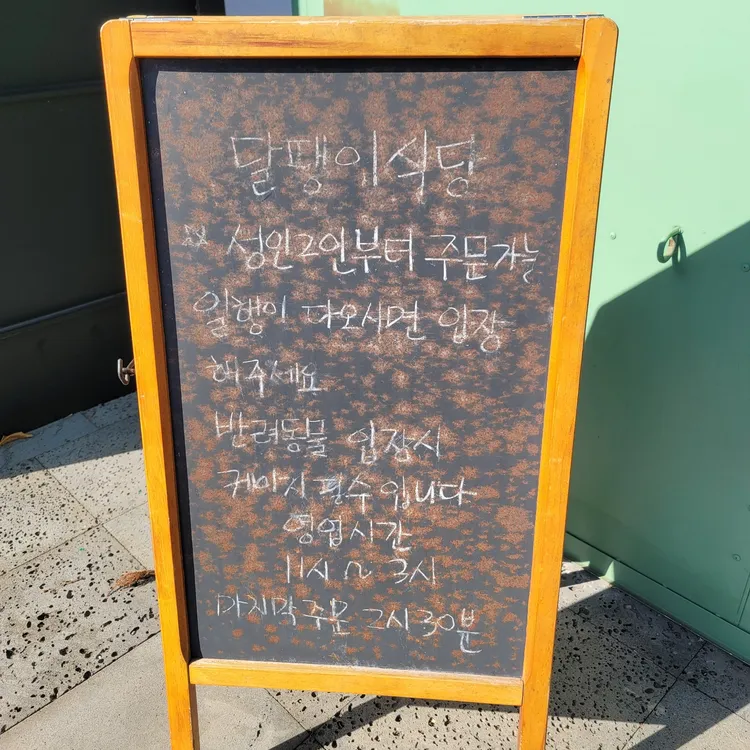 달팽이식당
※ 성인2인부터 주문가능
일행이 다오시면 입장
해주세요
반려동물 입장시
케이지 필수입니다
영업시간
11시 ~ 3시
마지막주문 2시30분